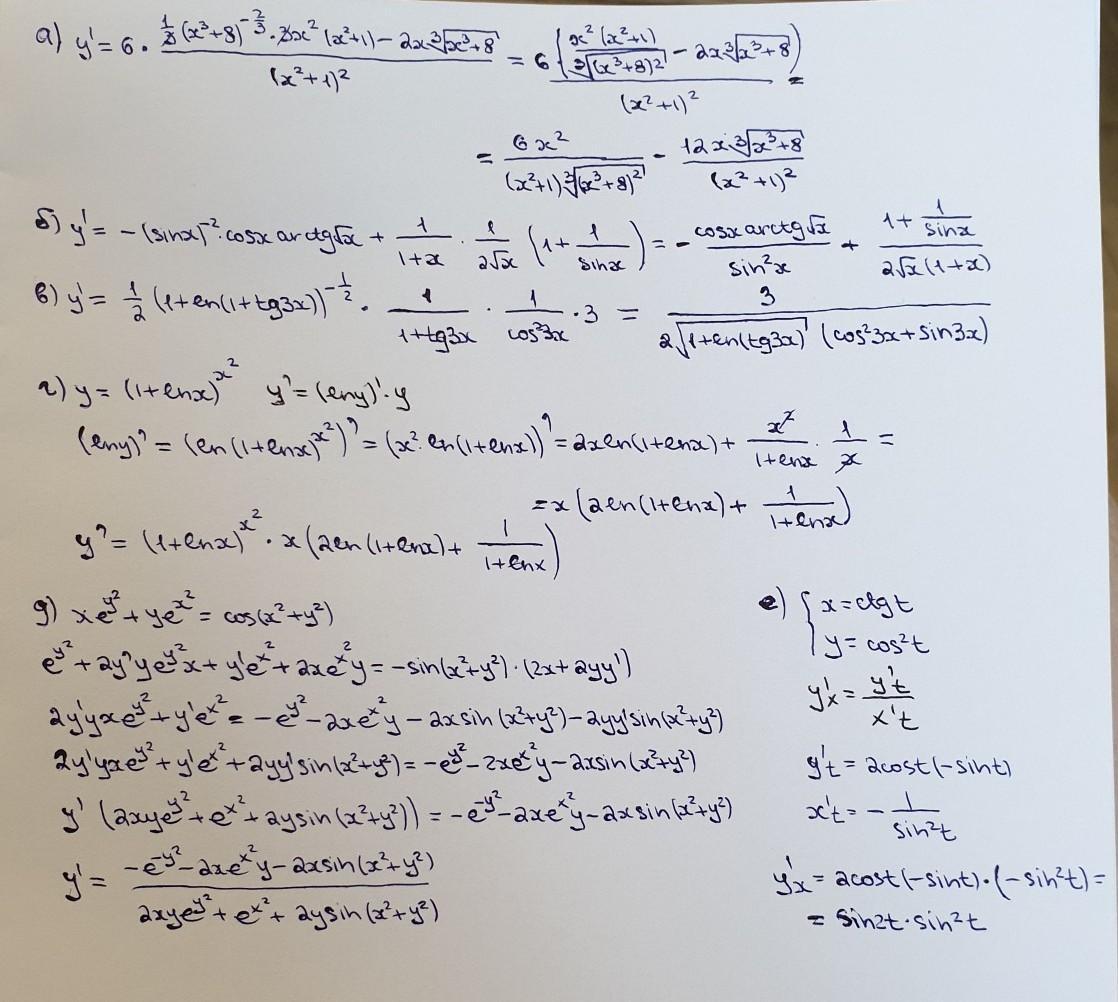 а) y' = 6 · (1/3 (x³+8)^(-2/3) · 3x² (x²+1) - 2x ∛(x³+8)) / (x²+1)² = 6 (x² (x²+1) / ∛((x³+8)²) - 2x ∛(x³+8)) / (x²+1)² =
= 6x² / ((x²+1) ∛((x³+8)²)) - 12x ∛(x³+8) / (x²+1)²
б) y' = -(sinx)^(-2) · cosx arctg√x + 1/(1+x) · 1/(2√x) (1 + 1/sinx) = - cosx arctg√x / sin²x + (1 + 1/sinx) / (2√x (1+x))
в) y' = 1/2 (1+ln(1+tg3x))^(-1/2) · 1/(1+tg3x) · 1/cos²3x · 3 = 3 / (2√(1+ln(tg3x)) (cos²3x + sin3x))
г) y = (1+lnx)^(x²) y' = (lny)' · y
(lny)' = (ln(1+lnx)^(x²))' = (x² · ln(1+lnx))' = 2xln(1+lnx) + x²/(1+lnx) · 1/x =
= x (2ln(1+lnx) + 1/(1+lnx))
y' = (1+lnx)^(x²) · x (2ln(1+lnx) + 1/(1+lnx))
g) xe^(y²) + ye^(x²) = cos(x²+y²)
e^(y²) + 2y'ye^(y²)x + y'e^(x²) + 2xe^(x²)y = -sin(x²+y²) · (2x + 2yy')
2y'yxe^(y²) + y'e^(x²) = -e^(y²) - 2xe^(x²)y - 2xsin(x²+y²) - 2yy'sin(x²+y²)
2y'yxe^(y²) + y'e^(x²) + 2yy'sin(x²+y²) = -e^(y²) - 2xe^(x²)y - 2xsin(x²+y²)
y' (2xye^(y²) + e^(x²) + 2ysin(x²+y²)) = -e^(-y²) - 2xe^(x²)y - 2xsin(x²+y²)
y' = (-e^(-y²) - 2xe^(x²)y - 2xsin(x²+y²)) / (2xye^(y²) + e^(x²) + 2ysin(x²+y²))
е) { x = ctgt
y = cos²t
y'x = y't / x't
y't = 2cost(-sint)
x't = - 1/sin²t
y'x = 2cost(-sint) · (-sin²t) =
= sin2t · sin²t